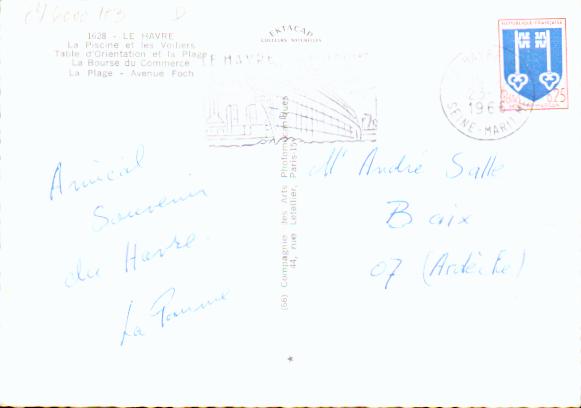 1628 - LE HAVRE
La Piscine et les Voiliers
Table d'Orientation et la Plage
La Bourse du Commerce
La Plage - Avenue Foch
EKTACAD
LE HAVRE
REPUBLIQUE FRANÇAISE
0,25
1966
SEINE-MARITIME
Amical
Souvenir
du Havre.
(66) Compagnie des Arts Photomécaniques
44, rue Letellier, Paris-15e
Mr André Salle
Baix
07 (Ardèche)